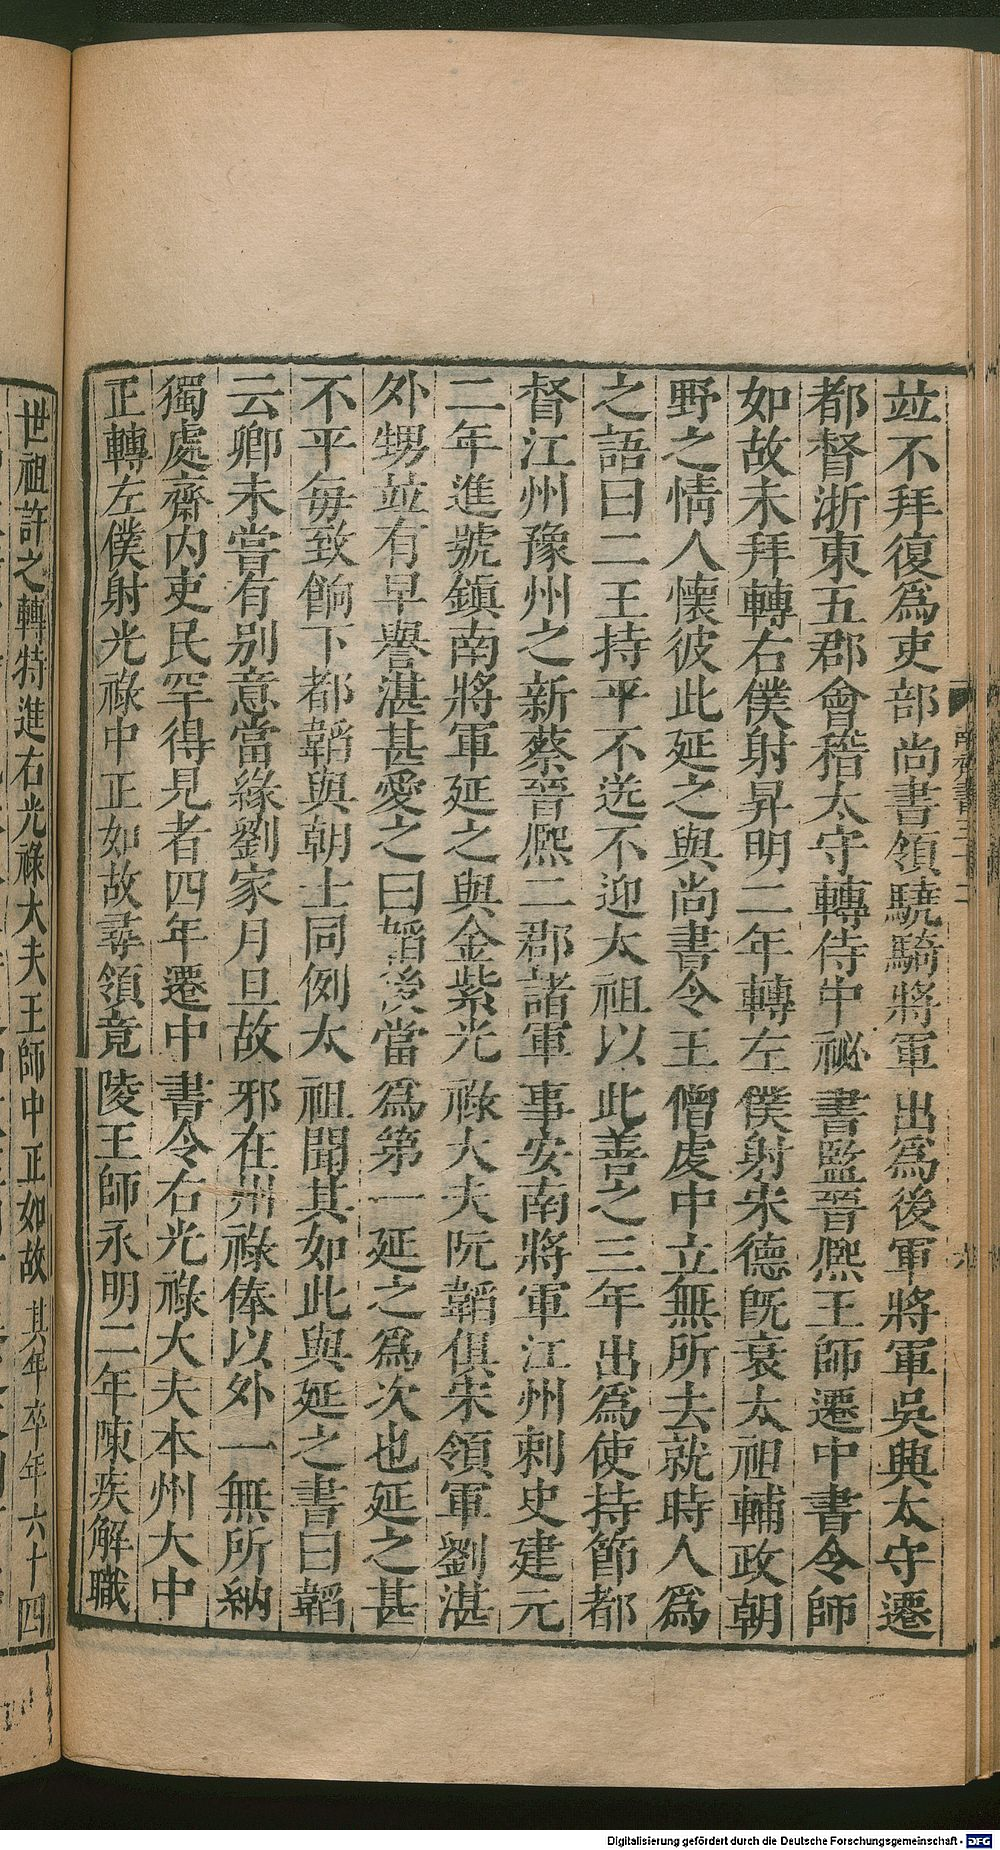 竝不拜復爲吏部尚書領驍騎將軍出爲後軍將軍吳興太守遷
都督浙東五郡會稽太守轉侍中祕書監晉熈王師遷中書令師
如故未拜轉右僕射昇明二年轉左僕射宋德旣衰太祖輔政朝
野之情人懷彼此延之與尚書令王僧虔中立無所去就時人爲
之語曰二王持平不送不迎太祖以此善之三年出爲使持節都
督江州豫州之新蔡晉熈二郡諸軍事安南將軍江州刺史建元
二年進號鎮南將軍延之與金紫光祿大夫阮韜俱宋領軍劉湛
外甥竝有早譽湛甚愛之曰韜後當爲第一延之爲次也延之甚
不平毎致餉下都韜與朝士同例太祖聞其如此與延之書曰韜
云卿未嘗有別意當緣劉家月旦故邪在州祿俸以外一無所納
獨處齋內吏民罕得見者四年遷中書令右光祿大夫本州大中
正轉左僕射光祿中正如故尋領竟陵王師永明二年陳疾解職
世祖許之轉特進右光祿大夫王師中正如故其年卒年六十四
Digitalisierung gefördert durch die Deutsche Forschungsgemeinschaft - DFG